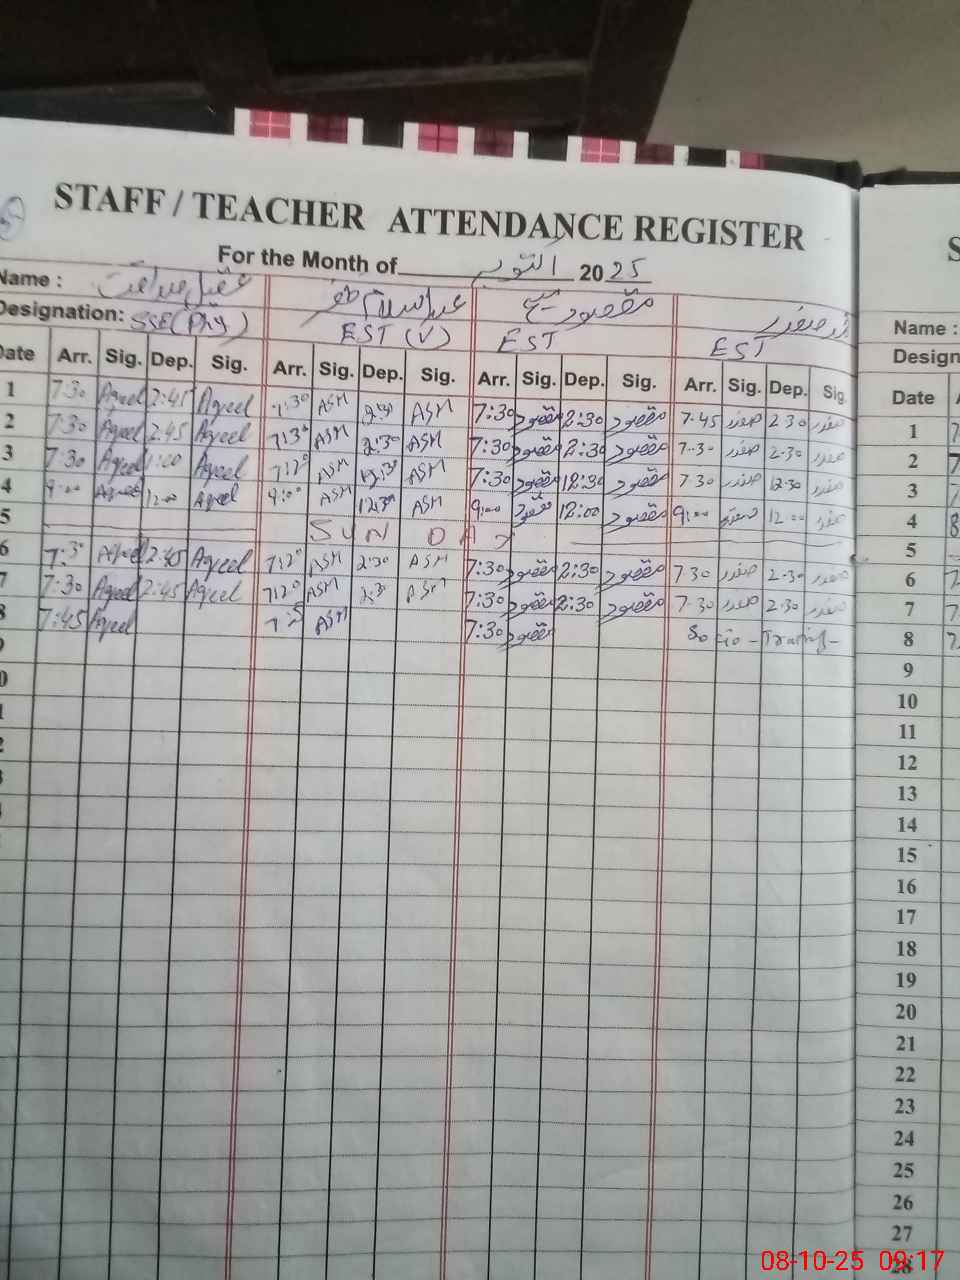 STAFF / TEACHER ATTENDANCE REGISTER S
For the Month of اکتوبر 2025
Name : مقصود Name :
Designation: SSE (Phy) EST (V) EST EST Design
Date Arr. Sig. Dep. Sig. Arr. Sig. Dep. Sig. Arr. Sig. Dep. Sig. Arr. Sig. Dep. Sig. Date
1 7:30 Aqeel 2:45 Aqeel 7:30 ASM 2:30 ASM 7:30 مقصود 2:30 مقصود 7-45 صفدر 2 30 صفدر 1 7
2 7:30 Aqeel 2:45 Aqeel 7:30 ASM 2:30 ASM 7:30 مقصود 2:30 مقصود 7-30 صفدر 2-30 صفدر 2 7
3 7:30 Aqeel Aqeel ASM 12:30 ASM 7:30 مقصود 12:30 مقصود 7-30 صفدر 12-30 صفدر 3
4 9:00 Aqeel 12:00 Aqeel 9:00 ASM 12:30 ASM 9:00 مقصود 12:00 مقصود 9:00 صفدر 12:00 صفدر 4 8
5 SUNDAY 5
6 7:30 Aqeel 2:45 Aqeel ASM 2:30 ASM 7:30 مقصود 2:30 مقصود 7 30 صفدر 2-30 صفدر 6 7
7 7:30 Aqeel 2:45 Aqeel ASM 2:30 ASM 7:30 مقصود 2:30 مقصود 7-30 صفدر 2-30 صفدر 7 7
8 7:45 Aqeel ASM 7:30 مقصود 8 7
9 9
0 10
1 11
2 12
3 13
14
15
16
17
18
19
20
21
22
23
24
25
26
27
28
08-10-25 09:17